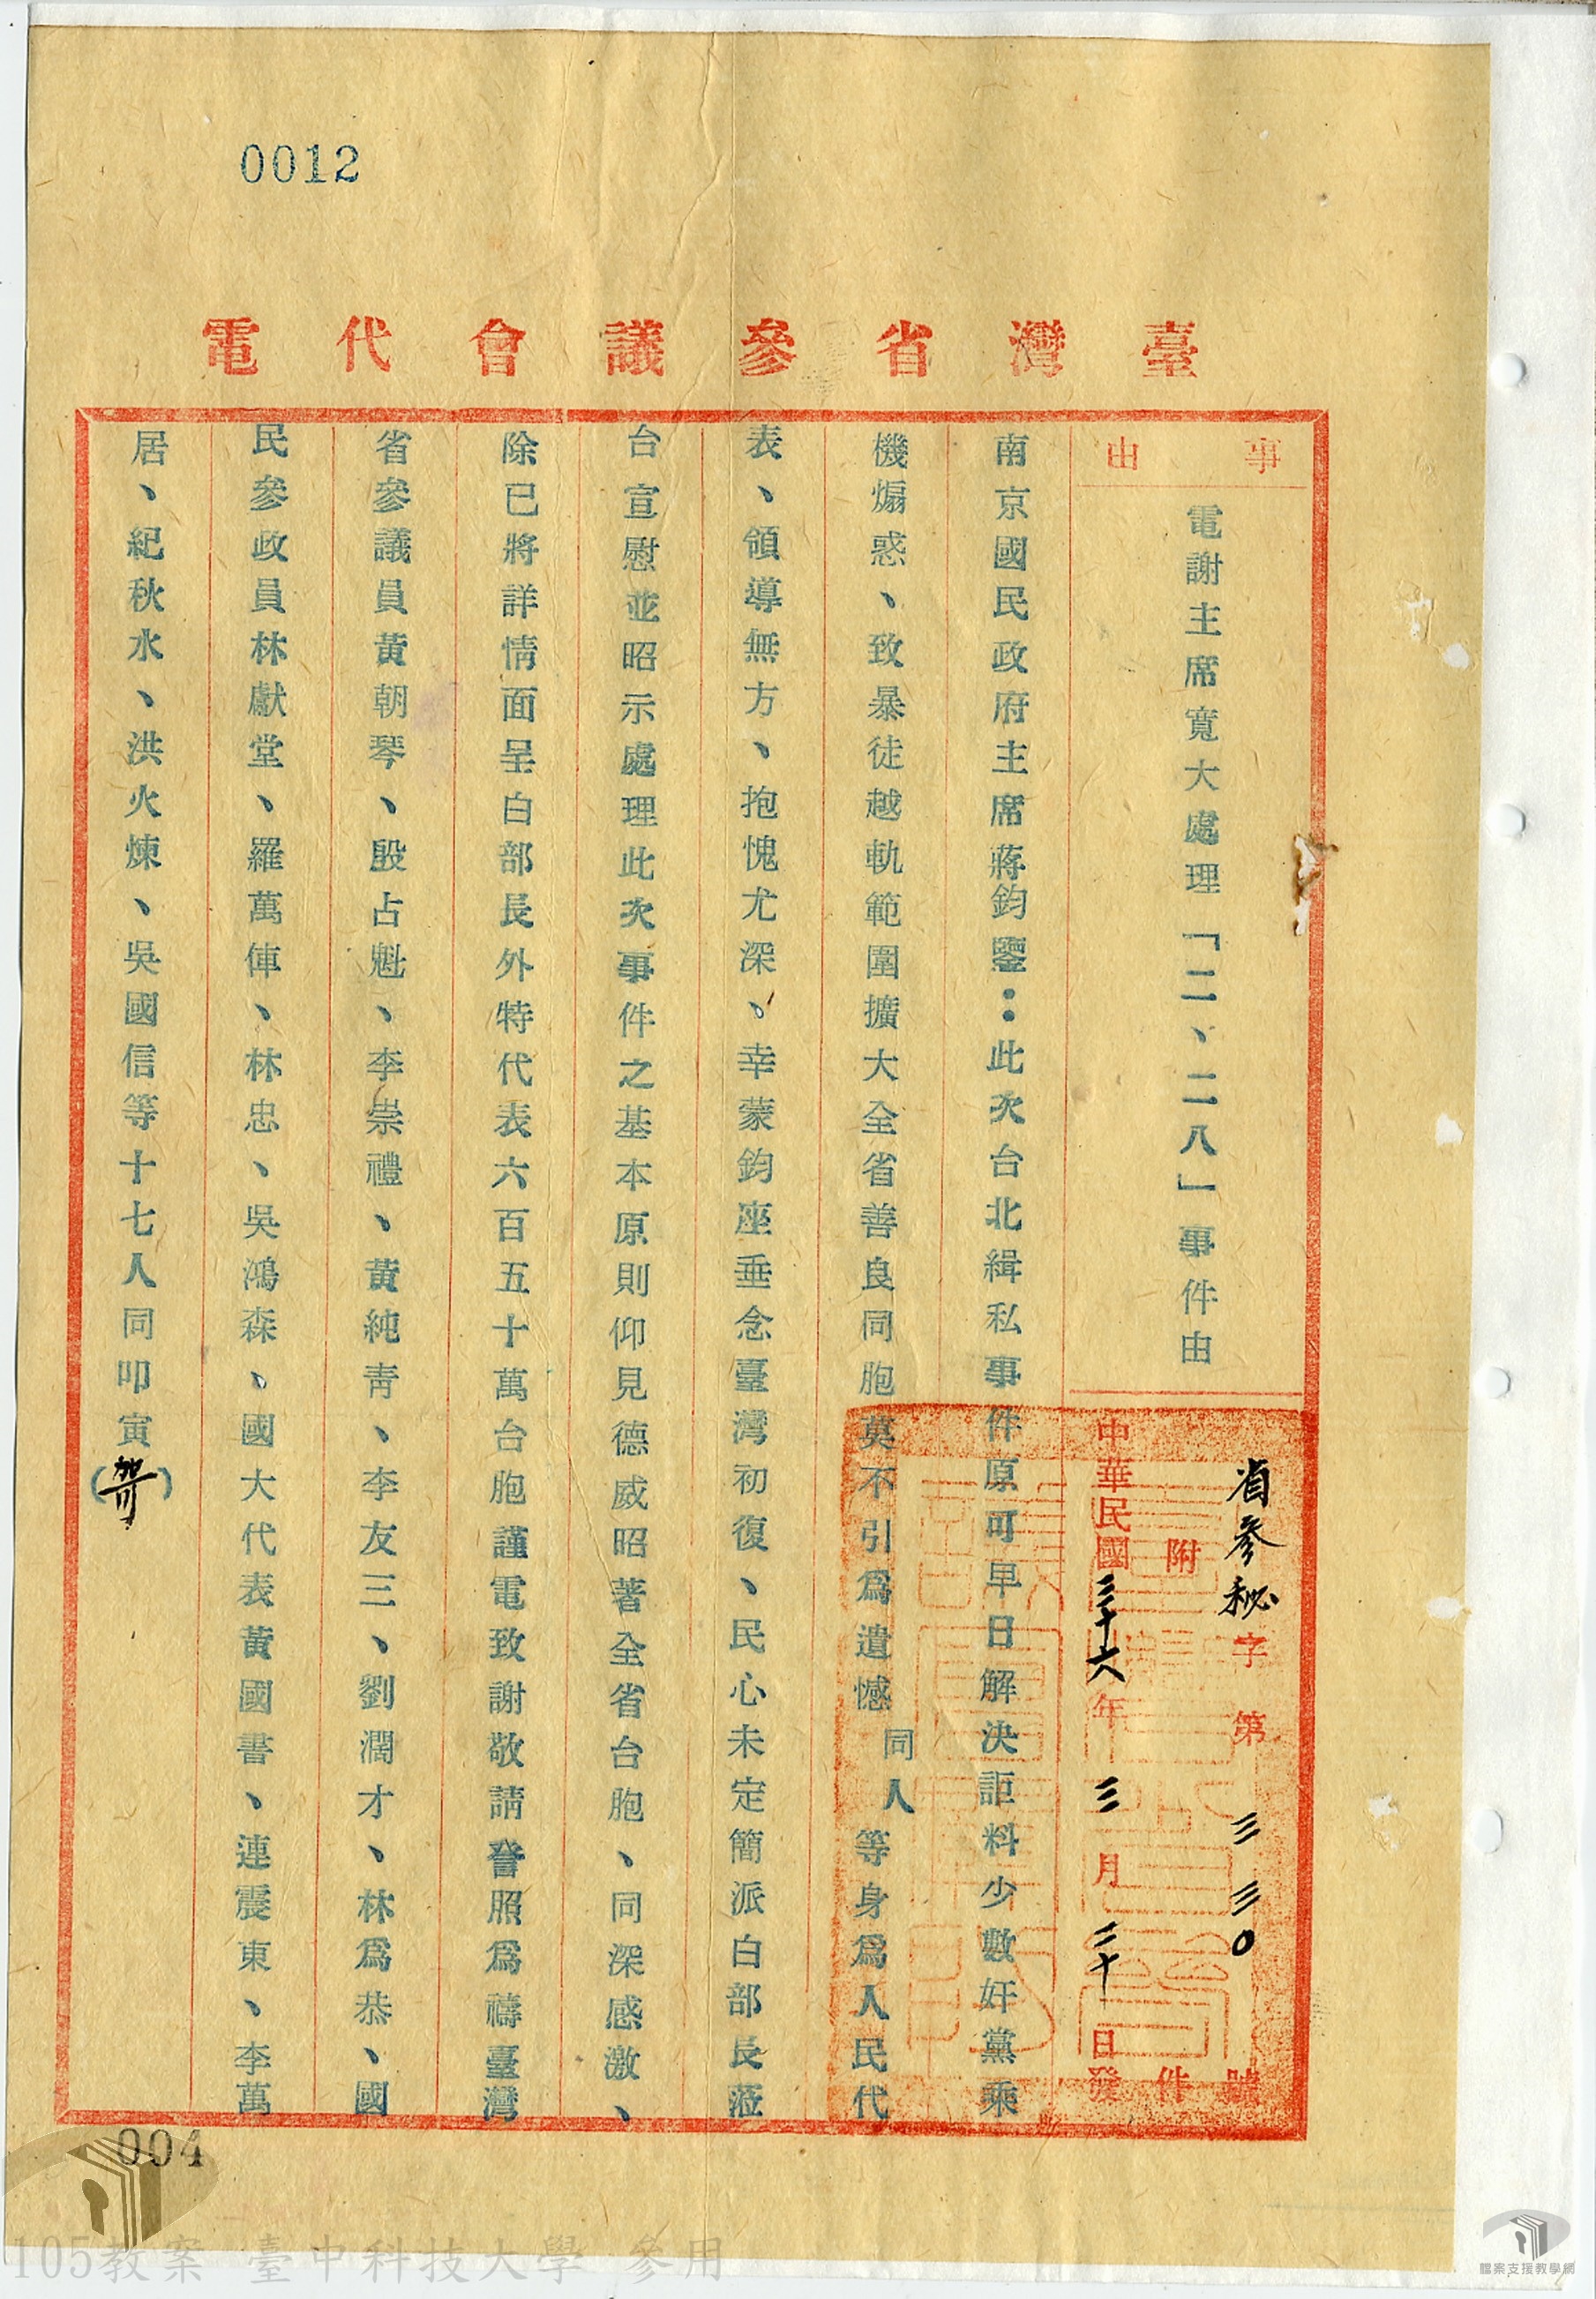 0012
臺灣省參議會代電
事由
電謝主席寬大處理「二、二八」事件由
省參秘字第三三三〇號
附件
中華民國三十六年三月三十日發
南京國民政府主席蔣鈞鑒：此次台北緝私事件原可早日解決詎料少數奸黨乘
機煽惑、致暴徒越軌範圍擴大全省善良同胞莫不引為遺憾同人等身為人民代
表、領導無方、抱愧尤深、幸蒙鈞座垂念臺灣初復、民心未定簡派白部長蒞
台宣慰並昭示處理此次事件之基本原則仰見德威昭著全省台胞、同深感激、
除已將詳情面呈白部長外特代表六百五十萬台胞謹電致謝敬請詧照為禱臺灣
省參議員黃朝琴、殷占魁、李崇禮、黃純青、李友三、劉濶才、林為恭、國
民參政員林獻堂、羅萬俥、林忠、吳鴻森、國大代表黃國書、連震東、李萬
居、紀秋水、洪火煉、吳國信等十七人同叩寅( )
004
105教案 臺中科技大學 參用
檔案支援教學網